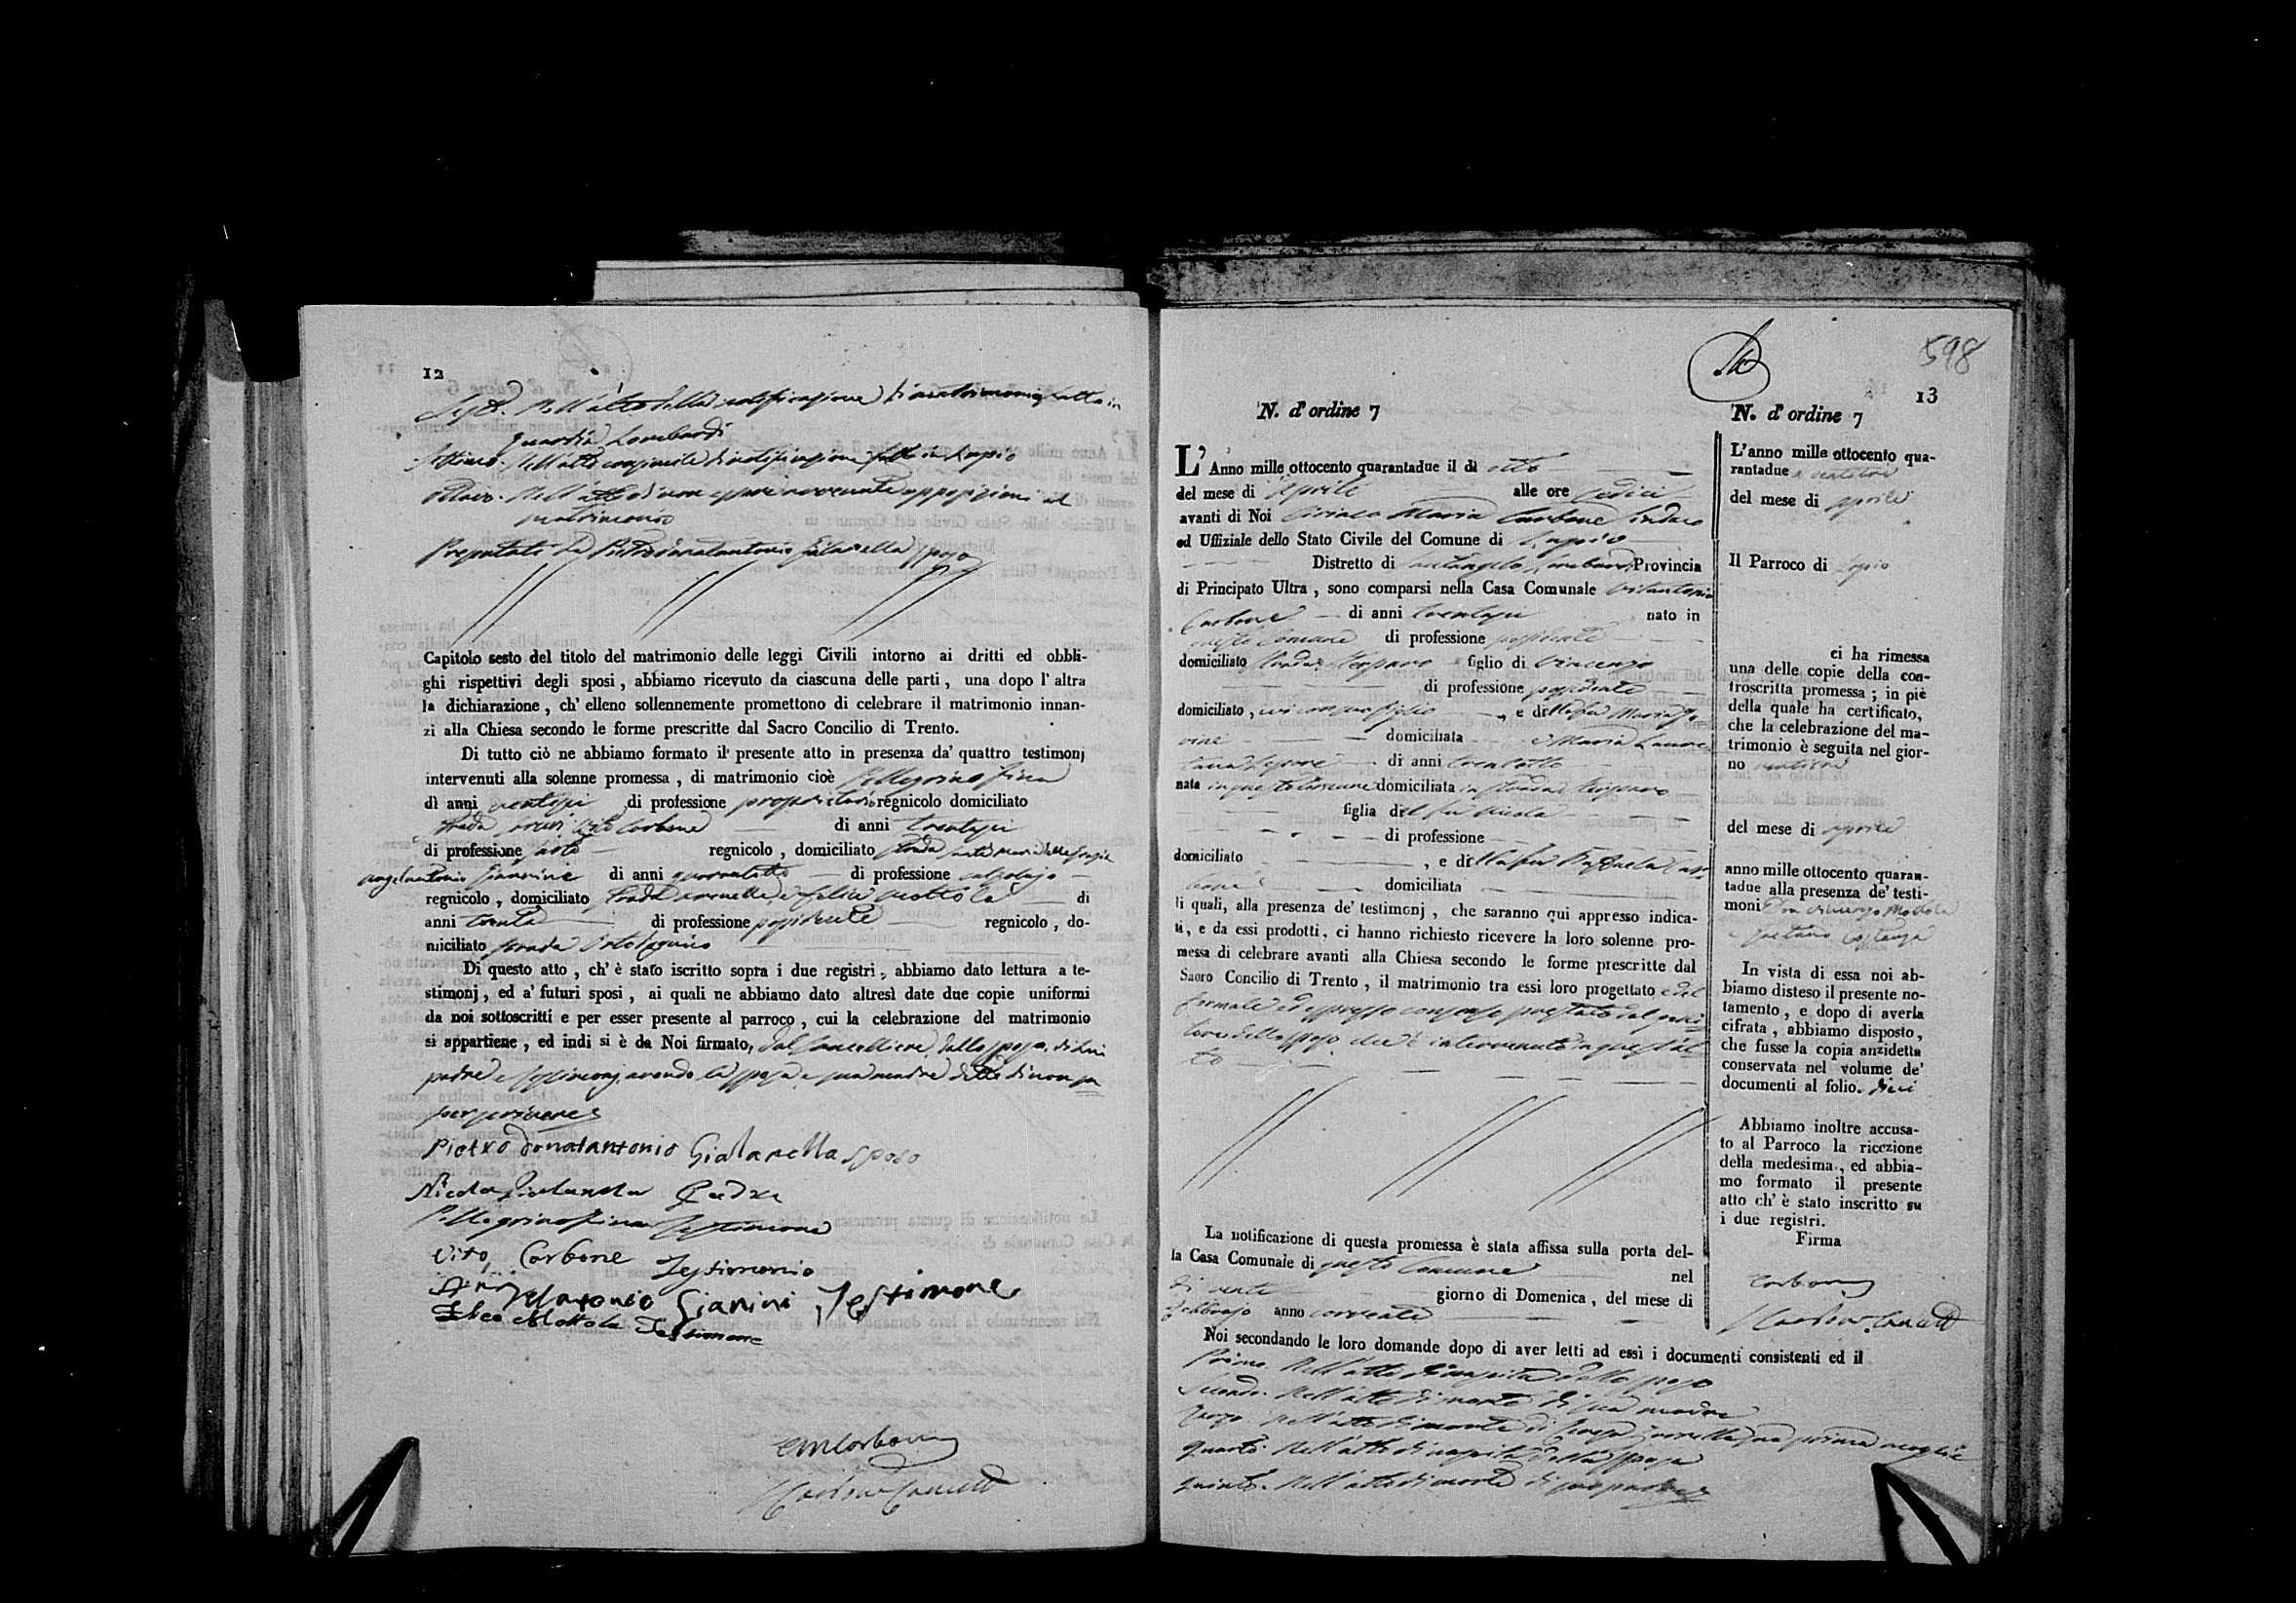 12
Sesto. Nell'atto della notificazione di matrimonio fatta in
Guardia Lombardi
Settimo. Nell'atto consimile di notificazione fatta in Lapio
Ottavo. Nell'atto di non essere avvenute opposizioni al
matrimonio
Presentati da Pietro Donatantonio Gialanella sposo
Capitolo sesto del titolo del matrimonio delle leggi Civili intorno ai dritti ed obbli-
ghi rispettivi degli sposi, abbiamo ricevuto da ciascuna delle parti, una dopo l'altra
la dichiarazione, ch'elleno sollennemente promettono di celebrare il matrimonio innan-
zi alla Chiesa secondo le forme prescritte dal Sacro Concilio di Trento.
Di tutto ciò ne abbiamo formato il presente atto in presenza da' quattro testimonj
intervenuti alla solenne promessa, di matrimonio cioè Pellegrino
di anni di professione proprietario regnicolo domiciliato
strada Vito Carbone di anni trentasei
di professione sarto regnicolo, domiciliato strada Santa Maria delle Grazie
Angelantonio Giannini di anni quarantotto di professione calzolajo
regnicolo, domiciliato strada e Felice Mottola di
anni trenta di professione possidente regnicolo, do-
miciliato strada
Di questo atto, ch'è stato iscritto sopra i due registri, abbiamo dato lettura a te-
stimonj, ed a' futuri sposi, ai quali ne abbiamo dato altresì date due copie uniformi
da noi sottoscritti e per esser presente al parroco, cui la celebrazione del matrimonio
si appartiene, ed indi si è da Noi firmato, dal Cancelliere, dallo sposo, di lui
padre e testimonj, avendo la sposa e sua madre detto di non sa
per scrivere
Pietro Donatantonio Gialanella sposo
Nicola Gialanella Padre
Pellegrino Testimone
Vito Carbone Testimonio
Angelantonio Gianini Testimone
Felice Mottola Testimone
CM Carbone
598
13
N. d'ordine 7
L'Anno mille ottocento quarantadue il dì otto
del mese di Aprile alle ore sedici
avanti di Noi Ciriaco Maria Carbone Sindaco
ed Uffiziale dello Stato Civile del Comune di Lapio
Distretto di Santangelo Lombardi Provincia
di Principato Ultra, sono comparsi nella Casa Comunale Vitantonio
Carbone di anni trentasei nato in
questo Comune di professione possidente
domiciliato strada figlio di Vincenzo
di professione possidente
domiciliato, ivi con suo figlio, e della fu Maria
domiciliata e Maria
di anni trentotto
nata in questo Comune domiciliata in strada
figlia del fu Nicola
di professione
domiciliato, e della fu Raffaela Car-
bone domiciliata
li quali, alla presenza de' testimonj, che saranno qui appresso indica-
ti, e da essi prodotti, ci hanno richiesto ricevere la loro solenne pro-
messa di celebrare avanti alla Chiesa secondo le forme prescritte dal
Sacro Concilio di Trento, il matrimonio tra essi loro progettato e del
formale ed espresso consenso prestato dal geni-
tore dello sposo che è intervenuto in quest'at-
to
La notificazione di questa promessa è stata affissa sulla porta del-
la Casa Comunale di questo Comune nel
dì venti giorno di Domenica, del mese di
Febbrajo anno corrente
Noi secondando le loro domande dopo di aver letti ad essi i documenti consistenti ed il
Primo. Nell'atto di nascita dello sposo
Secondo. Nell'atto di morte di sua madre
Terzo. Nell'atto di morte di sua prima moglie
Quarto. Nell'atto di nascita della sposa
Quinto. Nell'atto di morte di suo padre
N. d'ordine 7
L'anno mille ottocento qua-
rantadue
del mese di Aprile
Il Parroco di Lapio
ci ha rimessa
una delle copie della con-
troscritta promessa; in piè
della quale ha certificato,
che la celebrazione del ma-
trimonio è seguita nel gior-
no
del mese di aprile
anno mille ottocento quaran-
tadue alla presenza de' testi-
moni Don Mottola
e Gaetano
In vista di essa noi ab-
biamo disteso il presente no-
tamento, e dopo di averla
cifrata, abbiamo disposto,
che fusse la copia anzidetta
conservata nel volume de'
documenti al folio. dieci
Abbiamo inoltre accusa-
to al Parroco la ricezione
della medesima, ed abbia-
mo formato il presente
atto ch'è stato inscritto su
i due registri.
Firma
Carbone